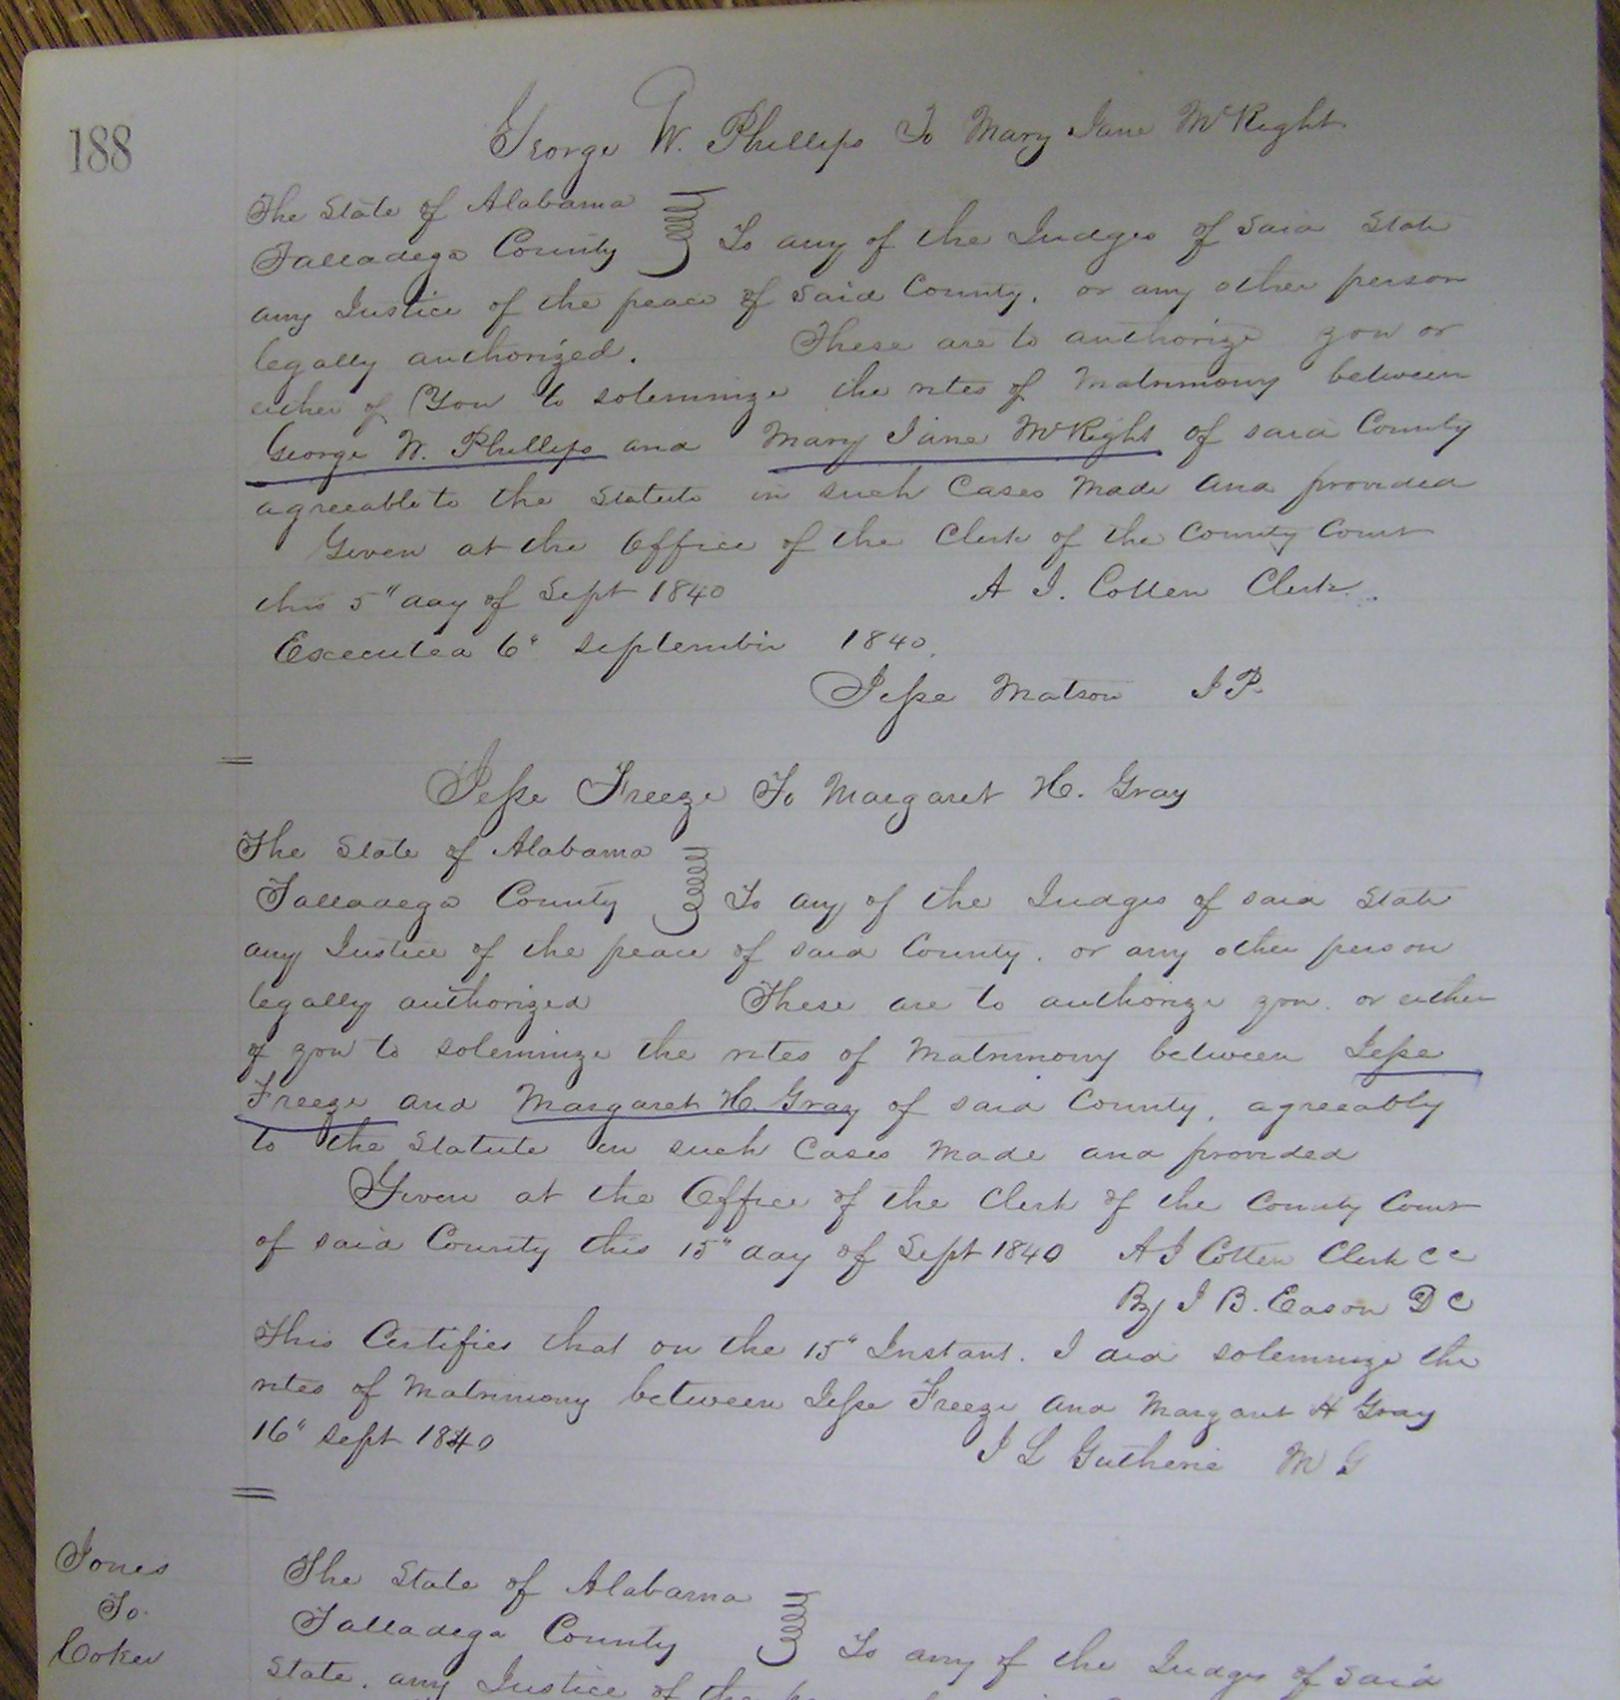 188
George W. Phillips To Mary Jane McRight
The State of Alabama
Talladega County To any of the Judges of Said State
any Justice of the peace of Said County, or any other person
legally authorized. These are to authorize you or
either of You to solemnize the rites of Matrimony between
George W. Phillips and Mary Jane McRight of said County
agreeable to the Statute in such Cases Made and provided
Given at the Office of the Clerk of the County Court
this 5" day of Sept 1840 A J. Cotten Clerk.
Executed 6" September 1840.
Jesse Matson J P.
Jesse Freeze To Margaret H. Gray
The State of Alabama
Talladega County To any of the Judges of said State
any Justice of the peace of said County, or any other person
legally authorized These are to authorize you or either
of you to solemnize the rites of Matrimony between Jesse
Freeze and Margaret H. Gray of said County, agreeably
to the Statute in such Cases Made and provided
Given at the Office of the Clerk of the County Court
of said County this 15" day of Sept 1840 A J Cotten Clerk C C
By J B. Eason D C
This Certifies that on the 15" Instant. I did solemnize the
rites of Matrimony between Jesse Freeze and Margaret H Gray
16" Sept 1840 J L Gutherie M G
Jones
To
Coker
The State of Alabama
Talladega County To any of the Judges of Said
State, any Justice of the